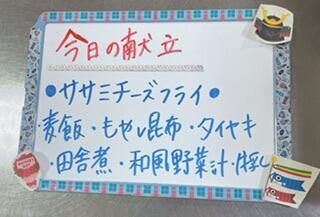 今日の献立
●ササミチーズフライ●
・麦飯・もやし昆布・タイヤキ
・田舎煮・和風野菜汁・牛乳